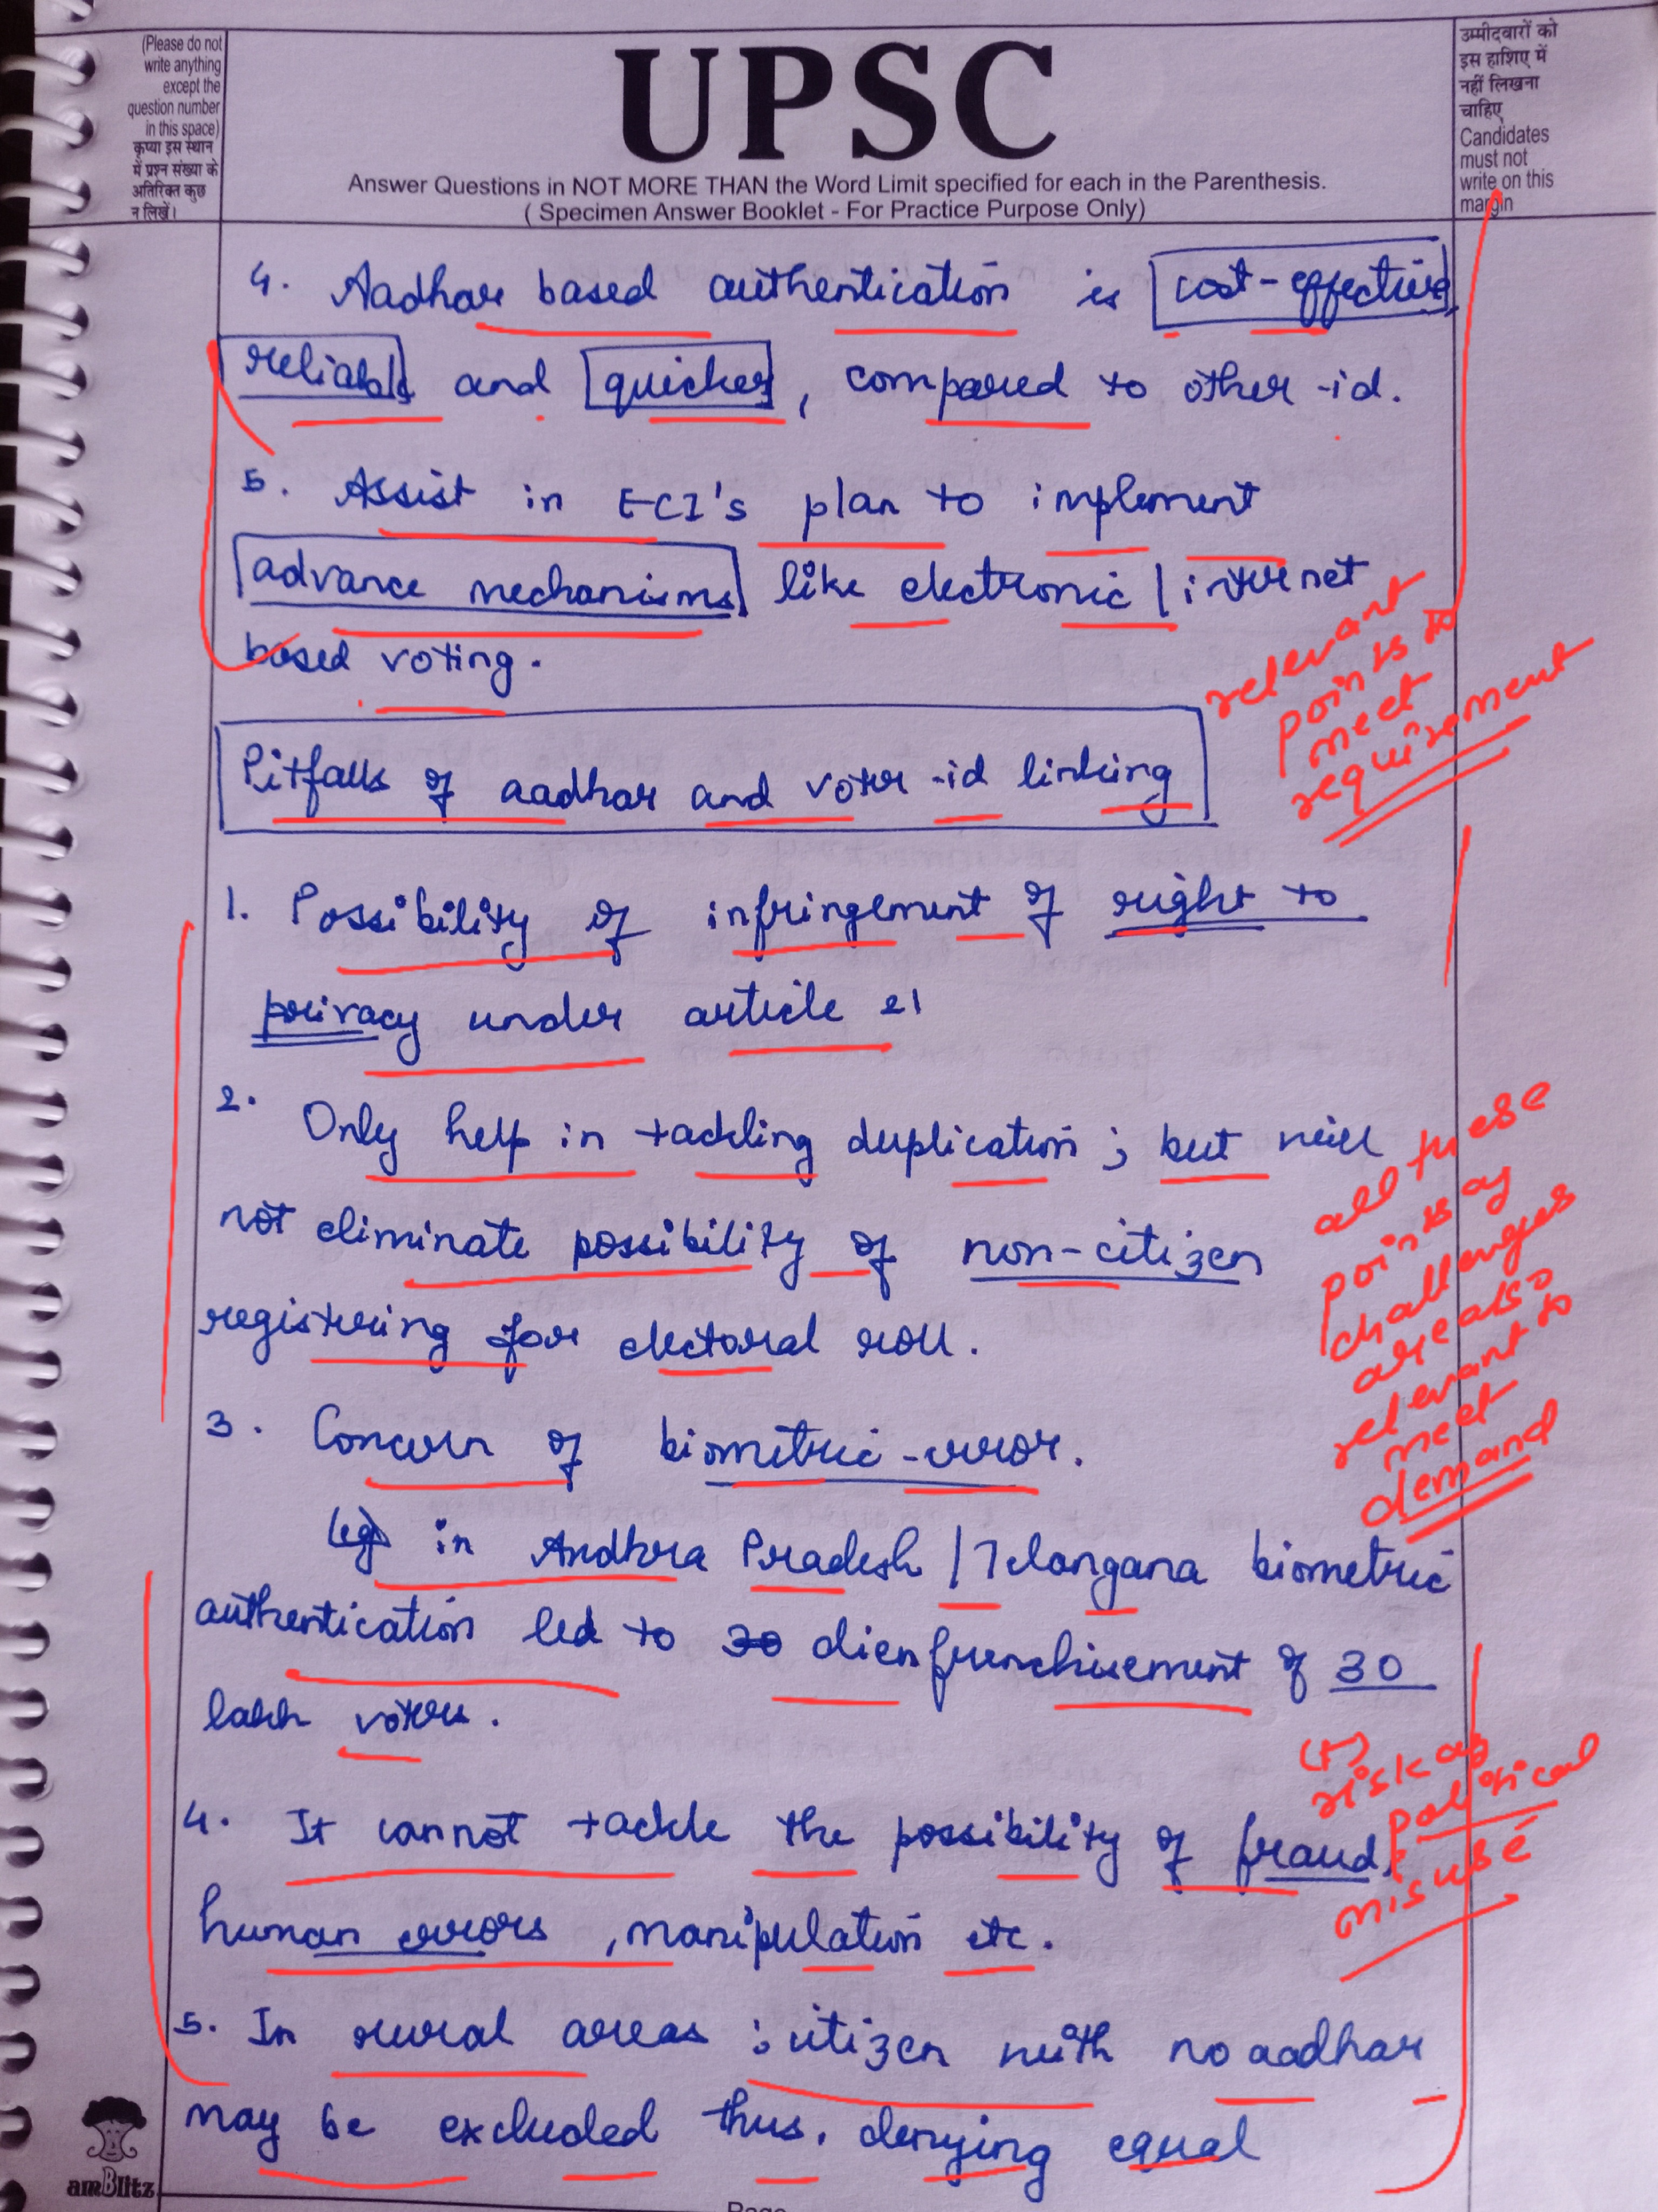 (Please do not
write anything
except the
question number
in this space)
कृप्या इस स्थान
में प्रश्न संख्या के
अतिरिक्त कुछ
न लिखें।
UPSC
Answer Questions in NOT MORE THAN the Word Limit specified for each in the Parenthesis.
( Specimen Answer Booklet - For Practice Purpose Only)
उम्मीदवारों को
इस हाशिए में
नहीं लिखना
चाहिए
Candidates
must not
write on this
margin
4. Aadhar based authentication is cost-effective
reliable and quicker, compared to other -id.
5. Assist in ECI's plan to implement
advance mechanisms like electronic / internet
based voting.
relevant
points to
meet
requirement
Pitfalls of aadhar and voter -id linking
1. Possibility of infringement of right to
privacy under article 21
2. Only help in tackling duplication ; but will
not eliminate possibility of non-citizen
registering for electoral roll.
all these
points of
challenges
are also
relevant to
meet
demand
3. Concern of biometric -error.
(eg) in Andhra Pradesh / Telangana biometric
authentication led to 30 disenfrenchisement of 30
lakh voters.
4. It cannot tackle the possibility of fraud,
human errors, manipulation etc.
(+)
risk of
political
misuse
5. In rural areas ; citizen with no aadhar
may be excluded thus, denying equal
amBlitz
Page